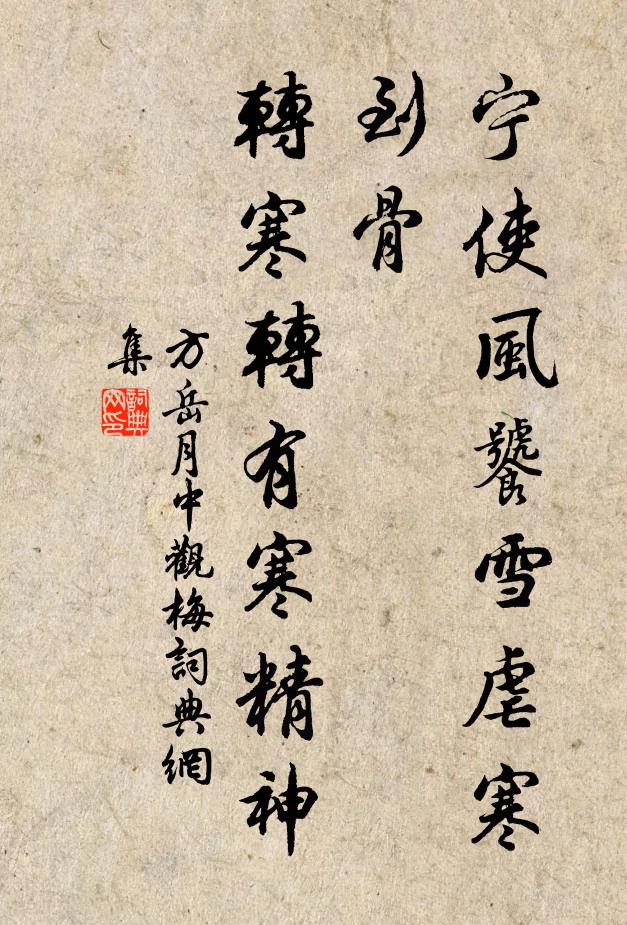 宁使風饕雪虐寒
到骨
轉寒轉有寒精神
方岳月中觀梅詞典網
集
詞典
网印